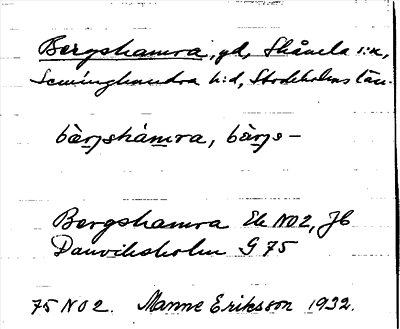 Bergshamra, gd, Skånela s:n,
Seminghundra h:d, Stockholms län.
bàrŋshàmra, bàrŋs-
Bergshamra Ek NO2, Jb
Danviksholm G 75
75 NO2. Manne Eriksson 1932.